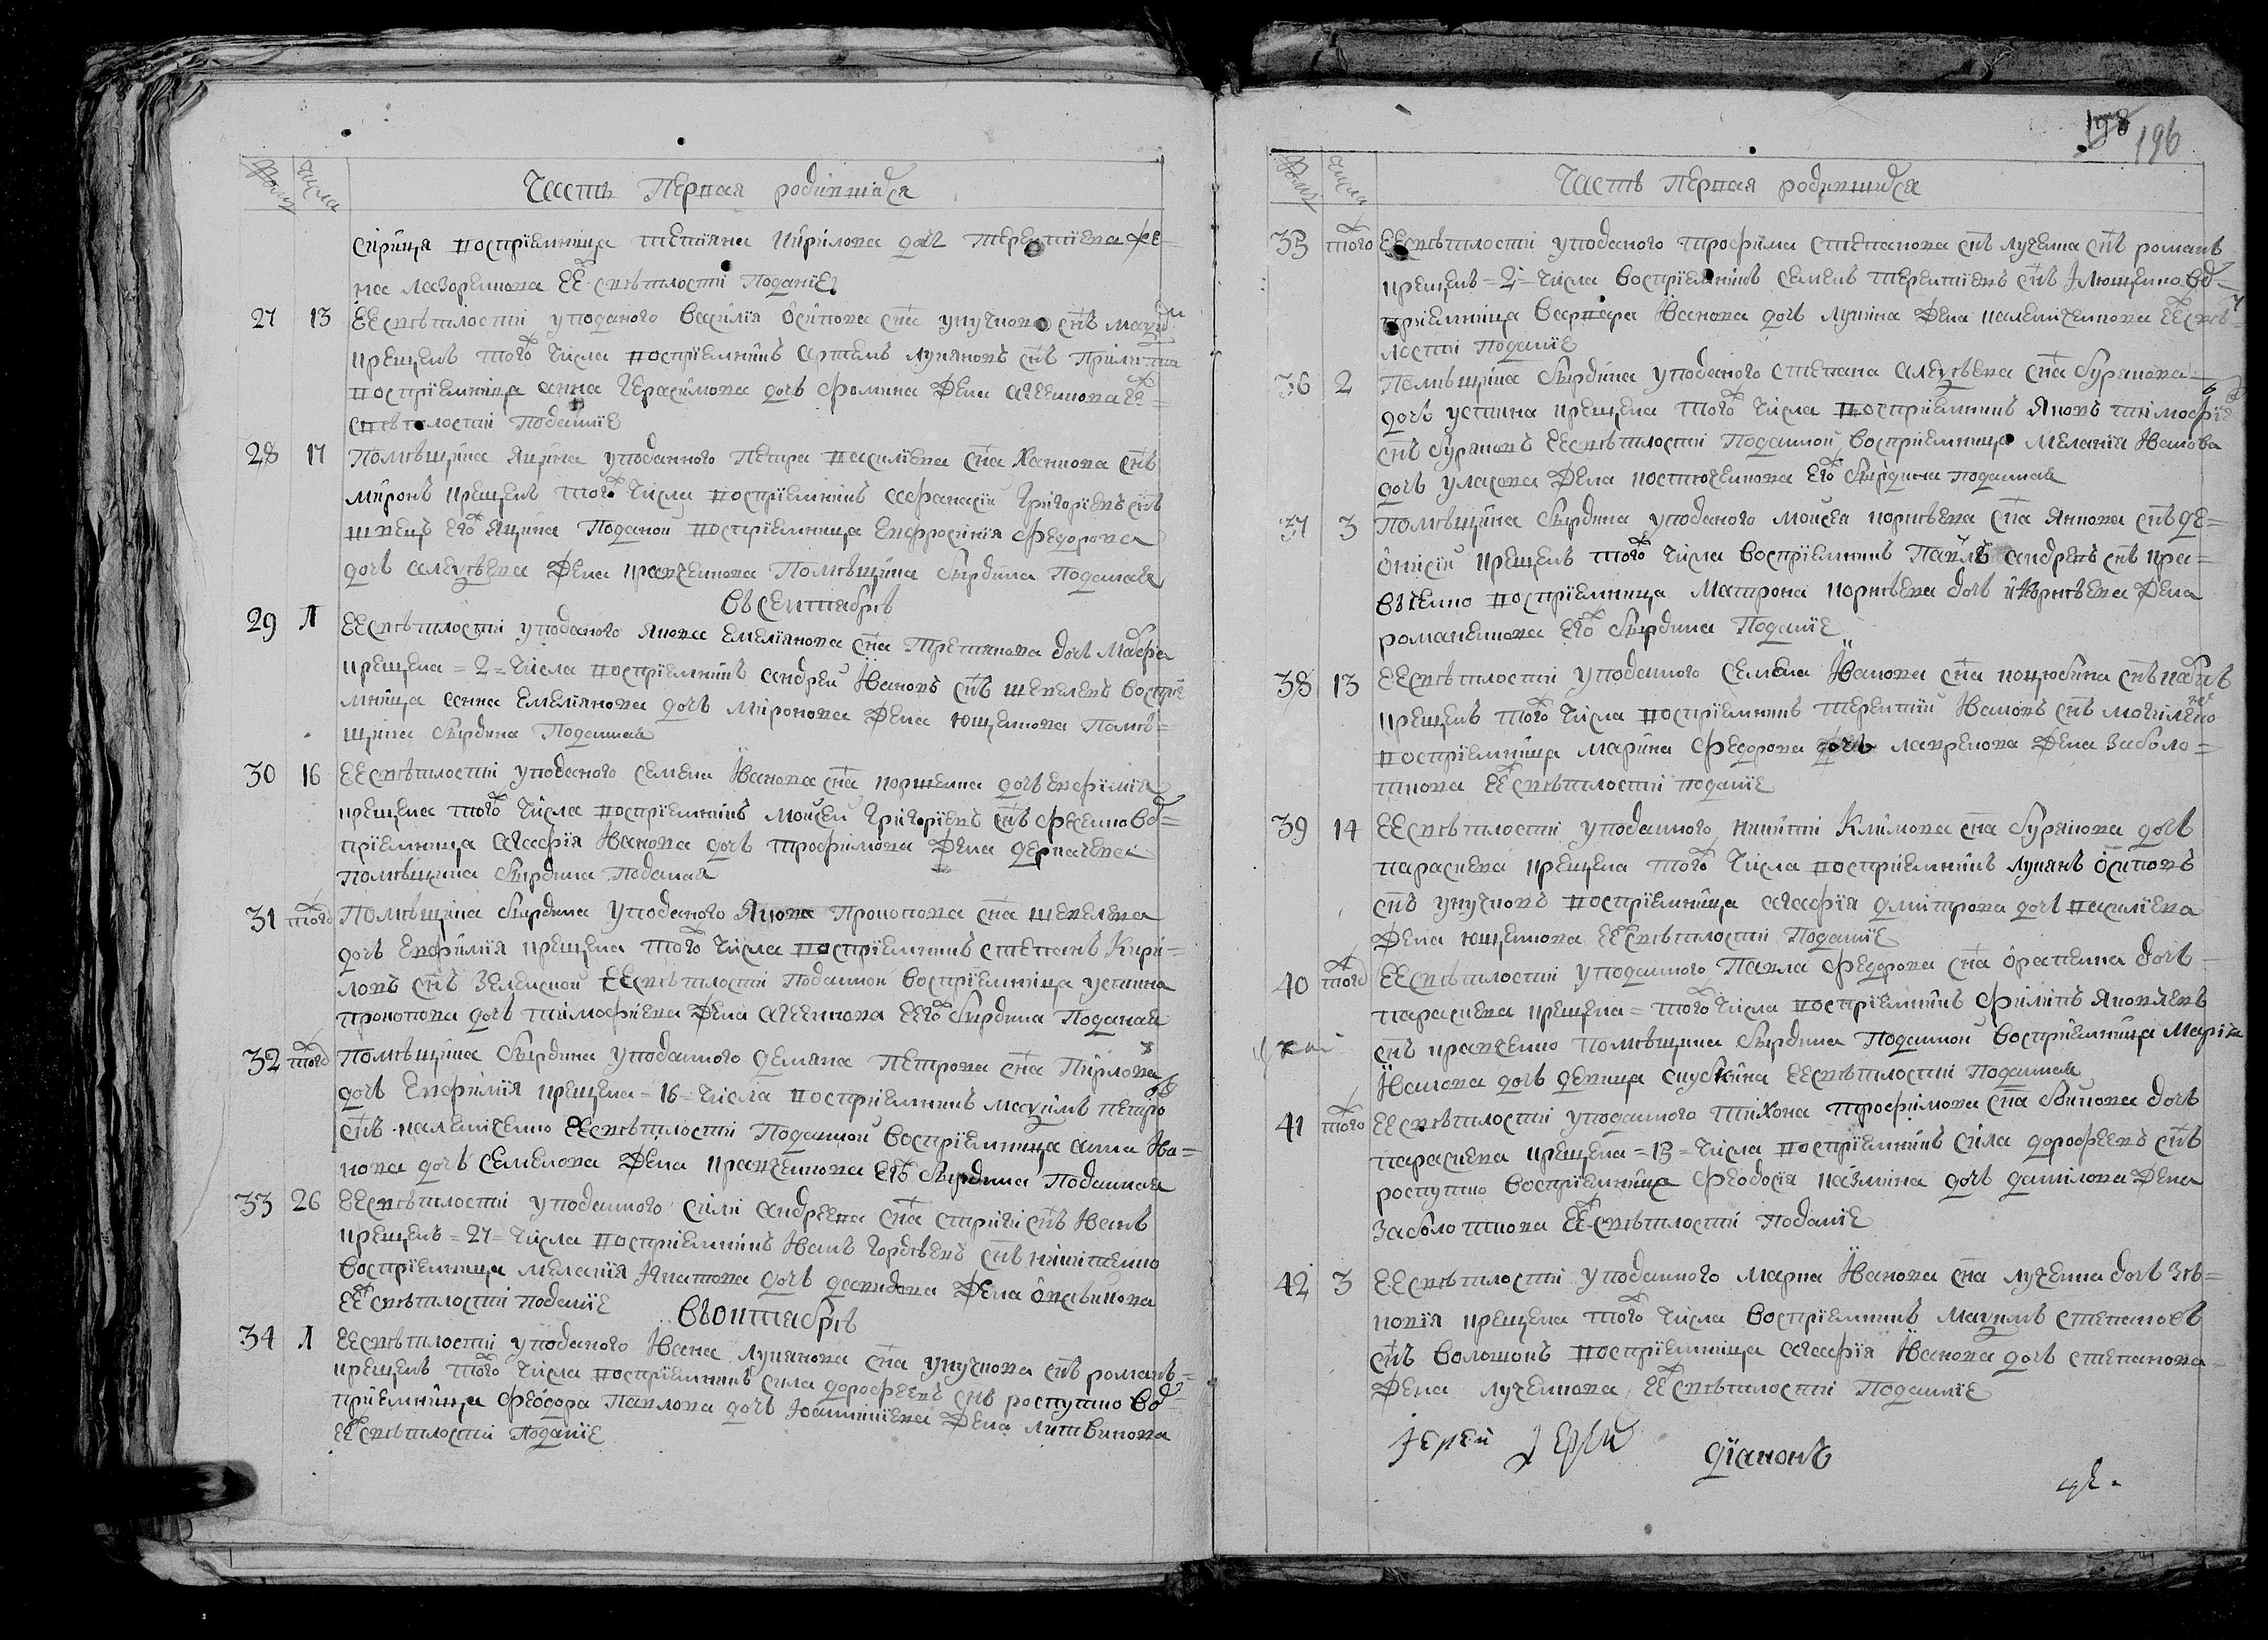 Часть первая родившихся
сприца восприемница тетияна кирилова дочь терентиева же=
на лазоренкова ее светлости подание
27 13 Ее светлости уподаного василия осипова сна унучкова снъ
крещенъ того числа восприемникъ артемъ лукяновъ снъ
восприемница анна герасимова дочь фомина жена агеенкова ее=
светлости подание
28 17 Помещика яцина уподанного петра василиева сна ханкова снъ
миронъ крещенъ того числа восприемникъ афанасий григориевъ снъ
швецъ его яцина поданой восприемница евфросиния федорова
дочь алексеева жена кравченкова помещика бырдина поданая
въ сентябре
29 1 Ее светлости уподаного якова емелиянова сна третякова дочь мавра
крещена = 2 = числа восприемникъ андрей ивановъ снъ шевелевъ воспрïе
мница анна емелиянова дочь миронова жена ющенкова поме=
щика бырдина поданая
30 16 Ее светлости уподаного семена иванова сна коршенка дочь евфимия
крещена того числа восприемникъ моисей григориевъ снъ фесенко вос=
приемница агафия иванова дочь трофимова жена деркачева
помещика бырдина поданая
31 того Помещика бырдина уподаного якова прокопова сна шевелева
дочь евфимия крещена того числа восприемникъ степанъ кири=
ловъ снъ зеленской ее светлости поданной восприемница устина
прокопова дочь тимофиева жена агеенкова его бырдина поданая
32 того Помещика бырдина уподанного демяна петрова сна
дочь евфимия крещена = 16 = числа восприемникъ максимъ петро
снъ калениченко ее светлости поданной восприемница анна ива=
нова дочь семенова жена кравченкова его бырдина поданная
33 26 Ее светлости уподанного сили андреева сна стриги снъ иванъ
крещенъ = 27 = числа восприемникъ иванъ гордеевъ снъ никитенко
восприемница мелания игнатова дочь давидова жена
ее светлости подание
въ октябре
34 1 Ее светлости уподаного ивана лукянова сна унучкова снъ романъ
крещенъ того числа восприемникъ сила дорофеевъ снъ роскутко вос=
приемница феодора павлова дочь жена литвинова
ее светлости подание
198 196
Часть первая родившихся
35 того Ее светлости уподаного трофима степанова снъ лученка снъ романъ
крещенъ = 2 = числа восприемникъ семенъ терентиевъ снъ вос
приемница варвара иванова дочь лукина жена калениченкова ее све=
лости подание
36 2 Помещика бырдина уподаного степана алексеева сна бурякова
дочь устина крещена того числа восприемникъ яковъ тимофие
снъ буряковъ ее светлости поданной восприемница мелания иванова
дочь уласова жена костюченкова его бырдина поданная
37 3 Помещика бырдина уподаного моисея корнеева сна янкова снъ де=
онисий крещенъ того числа восприемникъ павлъ андреевъ снъ кра=
вченко восприемница матрона корнеева дочь жена
романенкова его бырдина подание
38 13 Ее светлости уподанного семена иванова сна коцюбина снъ
крещенъ того числа восприемникъ терентий ивановъ снъ
восприемница марина федорова дочь лавренова жена заболо=
тнова ее светлости подание
39 14 Ее светлости уподанного никити климова сна бурякова дочь
параскева крещена того числа восприемникъ лукянъ осиповъ
снъ унучковъ восприемница агафия дмитрова дочь василиева
жена ющенкова ее светлости подание
40 того Ее светлости уподанного павла федорова сна дочь
параскева крещена = того числа восприемникъ филипъ яковлевъ
снъ кравченко помещика бырдина поданной восприемница мария
иванова дочь девица ее светлости поданная
41 того Ее светлости уподанного тихона трофимова сна бойкова дочь
параскева крещена = 13 = числа восприемникъ сила дорофеевъ снъ
роскутко восприемница феодосия казмина дочь данилова жена
заболотнова ее светлости подание
42 3 Ее светлости уподанного марка иванова сна лученка дочь зе=
новия крещена того числа восприемникъ максимъ степановъ
снъ волошовъ восприемница агафия иванова дочь степанова
жена лученкова ее светлости подание
Иерей Иерей диаконъ